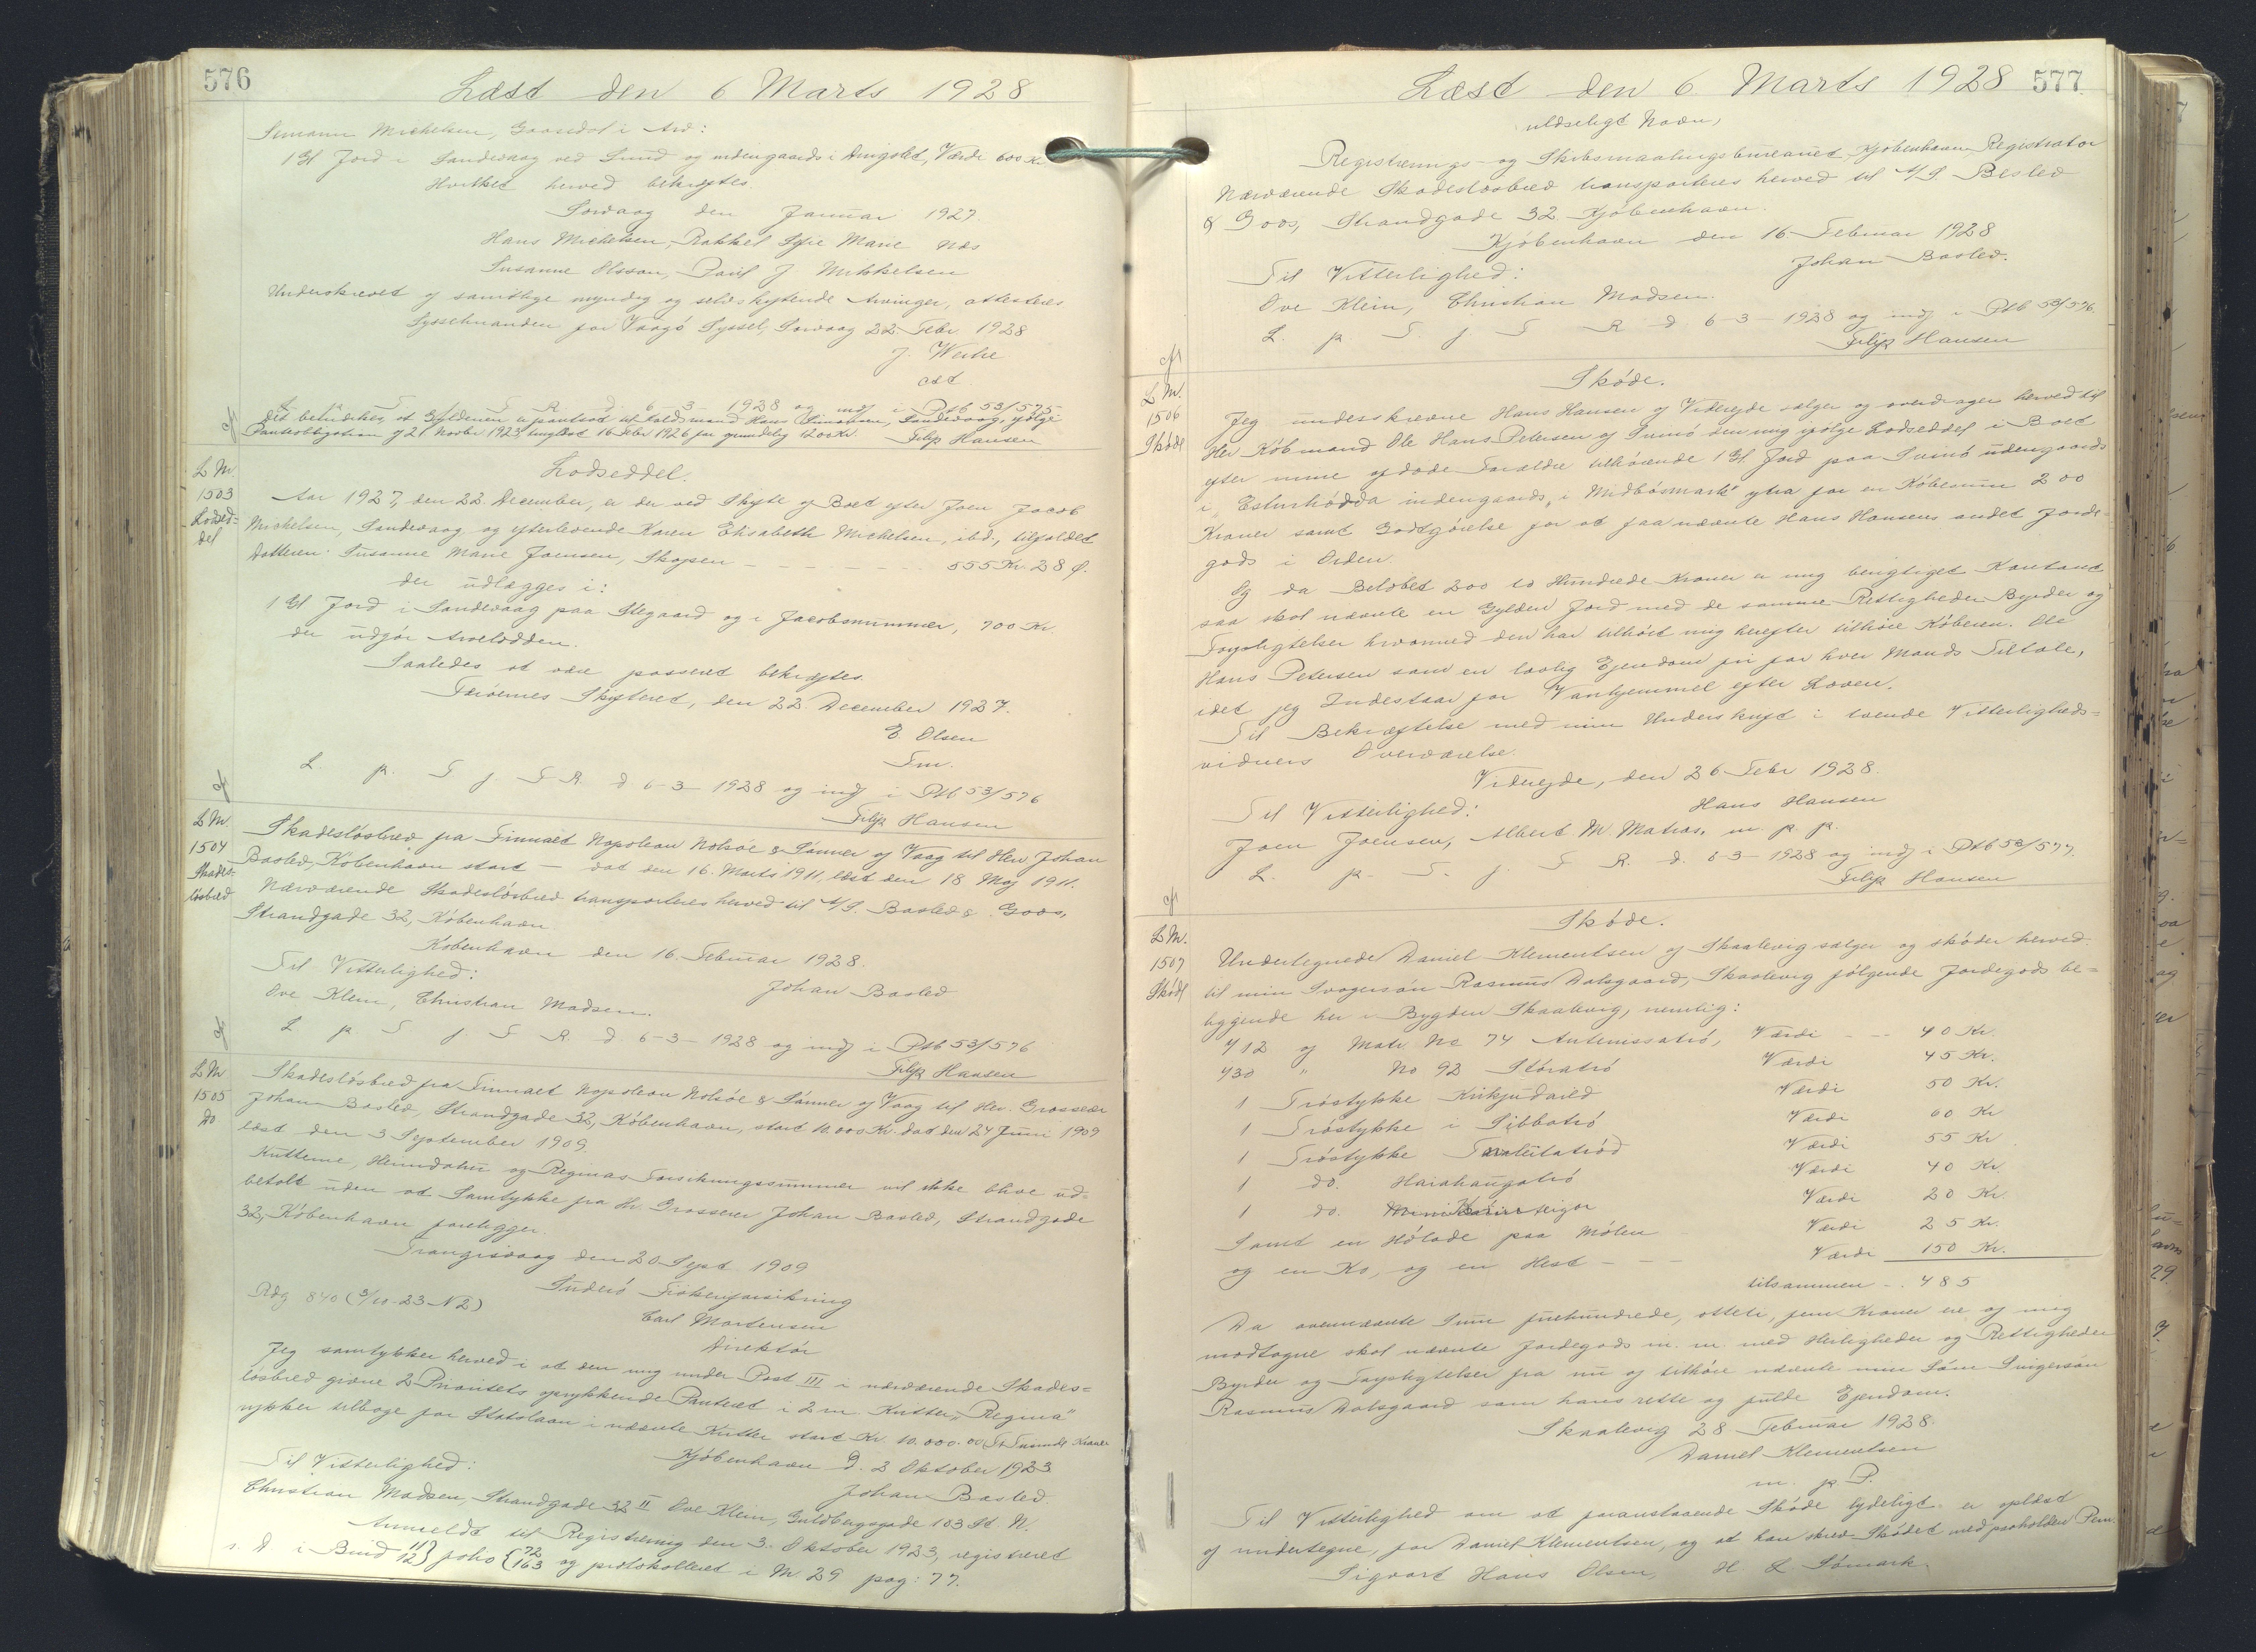 576
Læst den 6 Marts 1928
Simonn Michelsen, Gaasedal i Arv:
1 Gl Jord i Sandevaag ved Sund og indengaards i Dingolt, Værdi 600 Kr
Hvilket herved bekræftes.
Sørvaag den Januar 1927.
Hans Michelsen, Rakkel Sofie Marie Næs
Susanne Olsson, Poul J Mikkelsen
Underskrevet af samtlige myndig og selvskiftende Arvinger, attesteres
Sysselmanden for Vaagø Syssel, Sørvaag 22. Febr 1928
J. Weihe
cst.
L p T j T R d 6-3-1928 og indf i Ptb 53/575
Det bemærkes, at Gyldenen er pantsat til Raadsmand Hans Simonsen, Sandevaag, ifølge
Panteobligation af 21 Novbr 1925, tinglæst 16 Febr 1926 for grundelig 1200 Kr. Filip Hansen
L M.
1503
Lodsed=
del
Lodseddel.
Aar 1927, den 22. December, er der ved Skifte af Boet efter Joen Jacob
Michelsen, Sandevaag og efterlevende Karen Elisabeth Michelsen, ibd., tilfaldet
Datteren Susanne Marie Joensen, Skopen - - - - - 555 Kr. 28 Ø.
der udlægges i:
1 Gl Jord i Sandevaag paa Stegaard og i Jacobsnummer, 700 Kr.
der udgør Arvelodden.
Saaledes at være passeret bekræftes.
Færøernes Skifteret, den 22 December 1927.
E. Olsen
Fm.
L. p. T j. T R. d. 6-3-1928 og indf i Ptb 53/576
Filip Hansen
L M.
1504
Skades-
løsbrev
Skadesløsbrev fra Firmaet Napoleon Nolsøe & Sønner af Vaag til Herr Johan
Basted, København stort - dat den 16. Marts 1911, læst den 18 Maj 1911.
Nærværende Skadesløsbrev transporteres herved til A/S. Basted & Goos,
Strandgade 32, København
København den 16. Februar 1928.
Til Vitterlighed:
Johan Basted
Ove Klein, Christian Madsen.
L p T j T R. d. 6-3-1928 og indf i Ptb 53/576
Filip Hansen
L M
1505
Do
Skadesløsbrev fra Firmaet Napoleon Nolsøe & Sønner af Vaag til Her. Grosserer
Johan Basted, Strandgade 32, København, stort 10.000 Kr. dat den 24 Juni 1909
læst den 3 September 1909.
Kutterne, Heimdahn og Reginas Forsikringssummer vil ikke blive ud-
betalt uden at Samtykke fra Hr. Grosserer Johan Basted, Strandgade
32, København foreligger.
Trangisvaag den 20 Sept. 1909
Suderø Fiskeriforsikring
Carl Mortensen
Direktør
Rdg 840 (3/10-23 N2)
Jeg samtykker herved i at den mig under Post III i nærværende Skades=
løsbrev givne 2 Prioritets oprykkende Panteret i 2 m Kutter „Regina"
rykker tilbage for Statslaan i nævnte Kutter stort Kr. 10.000.00 Ti Tusinde Kroner
Kjøbenhavn D. 2 Oktober 1923
Til Vitterlighed:
Johan Basted.
Christian Madsen, Strandgade 32 II Ove Klein, Guldbergsgade 103 St. N.
Anmeldt til Registrering den 3. Oktober 1923, registreret
s. D i Bind 11/12} folio {72/163 og protokolleret i M 29 pag: 77.
Læst den 6 Marts 1928 577
ulæseligt Navn,
Registrerings- og Skibsmaalingsbureauet, Kjøbenhavn, Registrator
Nærværende Skadesløsbrev transporteres herved til A/S Basted
& Goos, Strandgade 32. Kjøbenhavn.
Kjøbenhavn den 16. Februar 1928
Til Vitterlighed:
Johan Basted.
Ove Klein, Christian Madsen.
L. p T. j. T R d 6-3-1928 og indf i Ptb 53/576.
Filip Hansen
L M.
1506
Skøde
Skøde.
Jeg underskrevne Hans Hansen af Videreide sælger og overdrager herved til
Her Købmand Ole Hans Petersen af Svinø den mig ifølge Lodseddel i Boet
efter mine afdøde Forældre tilhørende 1 Gl. Jord paa Svinø udengaards
i „Esturhødda indengaards, i Midbøsmark" ytra for en Købesum 200
Kroner samt Godtgørelse for at faa nævnte Hans Hansens andet Jorde-
gods i Orden.
Og da Beløbet 200 to Hundrede Kroner er mig berigtiget Kontant
saa skal nævnte en Gylden Jord med de samme Rettigheder Byrder og
Forpligtelser hvormed den har tilhørt mig herefter tilhøre Køberen. Ole
Hans Petersen som en lovlig Ejendom fri for hver Mands Tiltale,
idet jeg Indestaar for Vanhjemmel efter Loven.
Til Bekræftelse med min Underskrift i tvende Vitterligheds=
vidners Overværelse.
Videreide, den 26 Febr 1928.
Til Vitterlighed:
Hans Hansen
Joen Joensen, Albert M. Matras. m. p. p.
L. p. T. j T R. d. 6-3-1928 og indf i Ptb 53/577.
Filip Hansen
L M.
1507
Skøde
Skøde.
Undertegnede Daniel Klementsen af Skaalevig sælger og skøder herved
til min Svogersøn Rasmus Dalsgaard, Skaalevig følgende Jordegods be=
liggende her i Bygden Skaalevig, nemlig:
412 af Matr No 74 Antinissatrø, Værdi - - 40 Kr.
430 " No 92 Stóratrø Værdi 45 Kr.
1 Trøstykke Kirkjudarld Værdi 50 Kr.
1 Trøstykke i Sibbatrø Værdi 60 Kr
1 Trøstykke Værdi 55 Kr
1 do. Harahaugatrø Værdi 40 Kr.
1 do. Værdi 20 Kr.
Samt en Hølade paa Mølen Værdi 25 Kr.
og en Ko, og en Hest - - - Værdi 150 Kr.
tilsammen - . 485
Da ovennævnte Sum firehundrede, otteti, fem Kroner ere af mig
modtagne skal nævnte Jordegods m. m. med Herligheder og Rettigheder
Byrder og Forpligtelser fra nu af tilhøre nævnte min Søns Svigersøn
Rasmus Dalsgaard som hans rette og fulde Ejendom.
Skaalevig 28 Februar 1928.
Daniel Klementsen
m. p. P.
Til Vitterlighed om at foranstaaende Skøde tydeligt er oplæst
af undertegne, for Daniel Klementsen, og at han skrev Skødet med paaholden Pen.
Sigvart Hans Olsen, H E Sømark